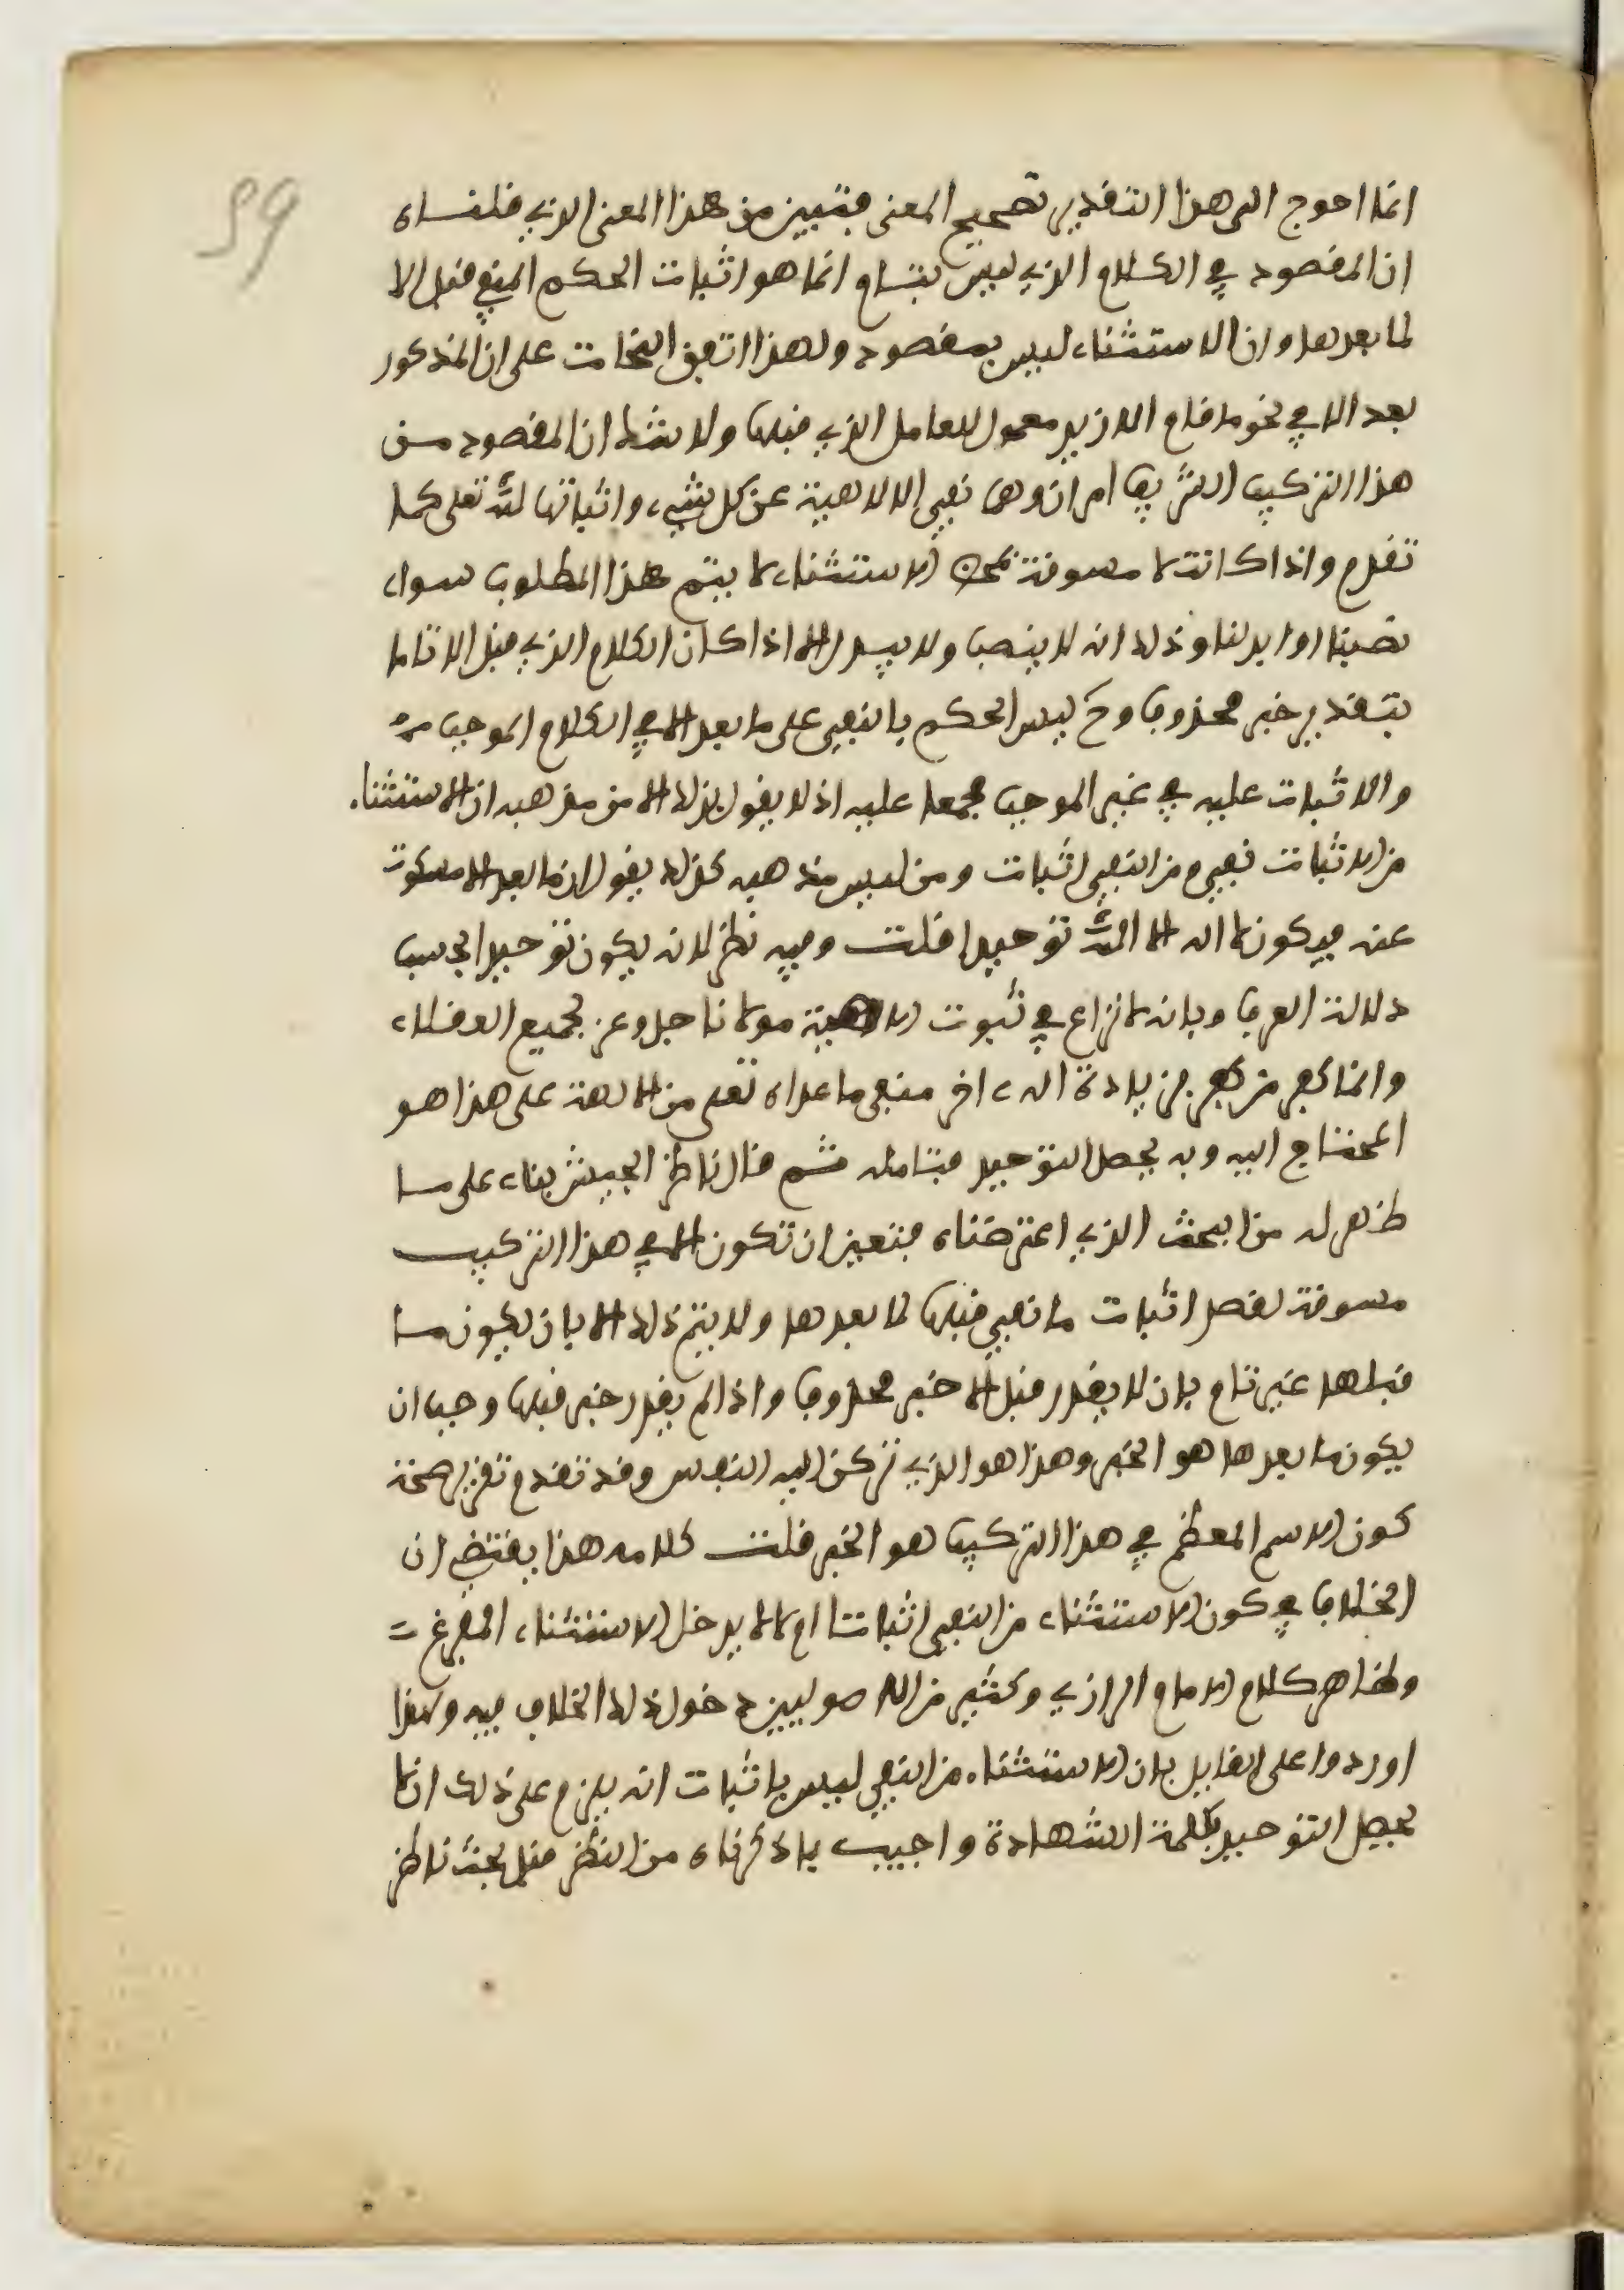 59
انما احوج الى هذا التقدير تصحيح المعنى فتبين من هذا المعنى الذي قلناه
ان المقصود في الكلام الذي ليس بتام انما هو اثبات الحكم المنفي قبل الا
لما بعدها وان الاستثناء ليس بمقصود ولهذا اتفق النحات على ان المذكور
بعد الا في نحو ما قام الا زيد معمول للعامل الذي قبلها ولا شك ان المقصود من
هذا التركيب الشريف امران وهما نفي الالاهية عن كل شيء واثباتها لله تعلى كما
تقدم واذا كانت لا مسوقة لمحض الاستثناء لا يتم هذا المطلوب سواء
نصبنا او ابدلنا وذلك انه لا ينصب ولا يبدل الا اذا كان الكلام الذي قبل الا تاما
بتقدير خبر محذوف وح ليس الحكم بالنفي على ما بعد الا في الكلام الموجب
والاثبات عليه في غير الموجب مجمعا عليه اذ لا يقول بذلك الا من مذهبه ان الاستثناء
من الاثبات نفي ومن النفي اثبات ومن ليس مذهبه كذلك يقول ان ما بعد الا مسكوت
عنه فيكون لا اله الا الله توحيدا قلت وفيه نظر لانه يكون توحيدا بحسب
دلالة العرف وبانه لا نزاع في ثبوت الالاهية مولانا جل وعز بجميع العقلاء
وانما كفر من كفر بزيادة اله اخر فنفي ما عداه تعلى من الالهة على هذا هو
المحتاج اليه وبه يحصل التوحيد فتامله ثم قال ناظر الجيش بناء على ما
ظهر له من البحث الذي اعترضناه فتعين ان تكون الا في هذا التركيب
مسوقة لقصد اثبات ما نفي قبلها لما بعدها ولا يتم ذلك الا بان يكون ما
قبلها غير تام بان لا يقدر قبل الا خبر محذوف واذا لم يقدر خبر قبلها وجب ان
يكون ما بعدها هو الخبر وهذا هو الذي تركن اليه النفس وقد تقدم تقرير صحة
كون الاسم المعظم في هذا التركيب هو الخبر قلت كلامه هذا يقتضي ان
الخلاف في كون الاستثناء من النفي اثباتا ام لا لا يدخل الاستثناء المفرغ
وظاهر كلام الامام الرازي وكثير من الاصوليين دخول ذلك الخلاف فيه ولهذا
اوردوا على القايل بان الاستثناء من النفي ليس باثبات انه يلزم على ذلك ان لا
يحصل التوحيد بكلمة الشهادة واجيب بما ذكرناه من النظر قبل بحث ناظر